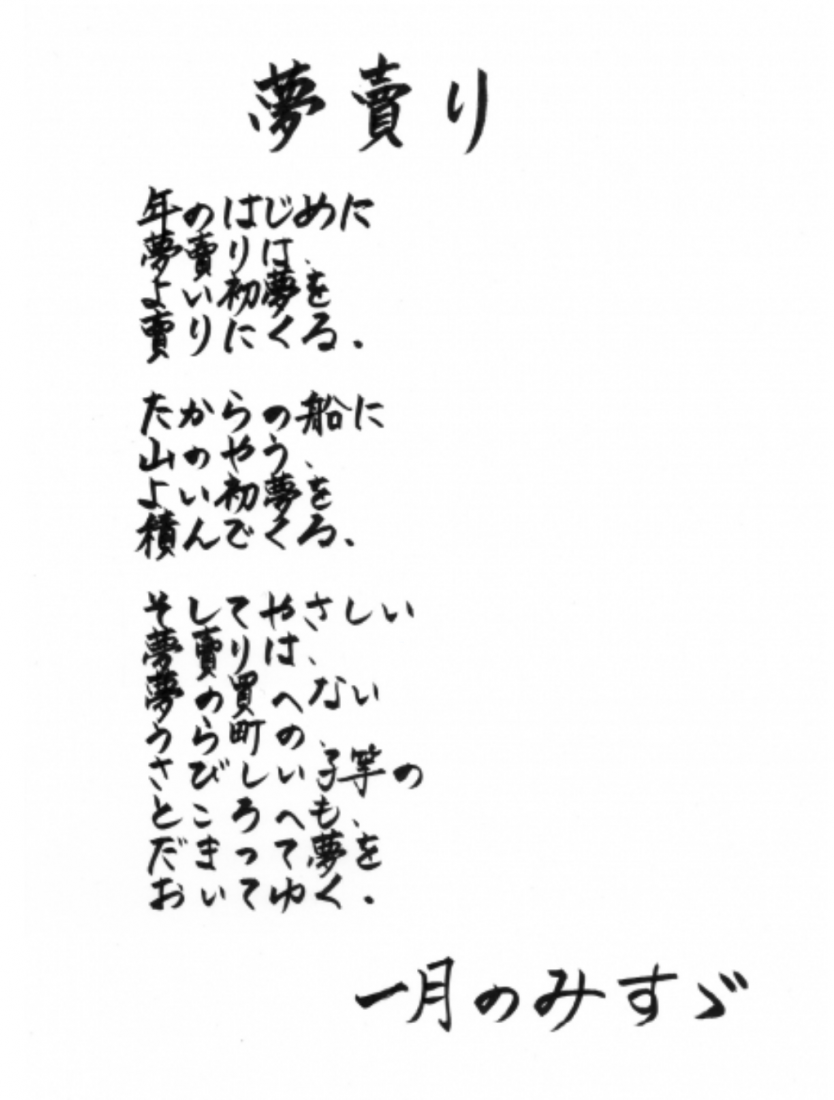 夢賣り
年のはじめに
夢賣りは、
よい初夢を
賣りにくる。
たからの船に
山のやう、
よい初夢を
積んでくる。
そしてやさしい
夢賣りは、
夢の買へない
うら町の、
さびしい子等の
ところへも、
だまって夢を
おいてゆく。
一月のみすゞ